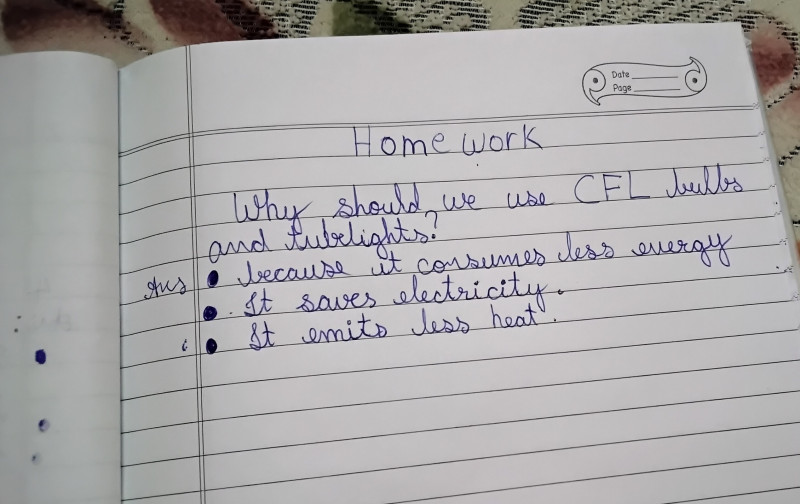 Date
Page
Home work
Why should we use CFL bulbs
and tubelights?
Ans • because it consumes less energy
• . It saves electricity.
• It emits less heat.